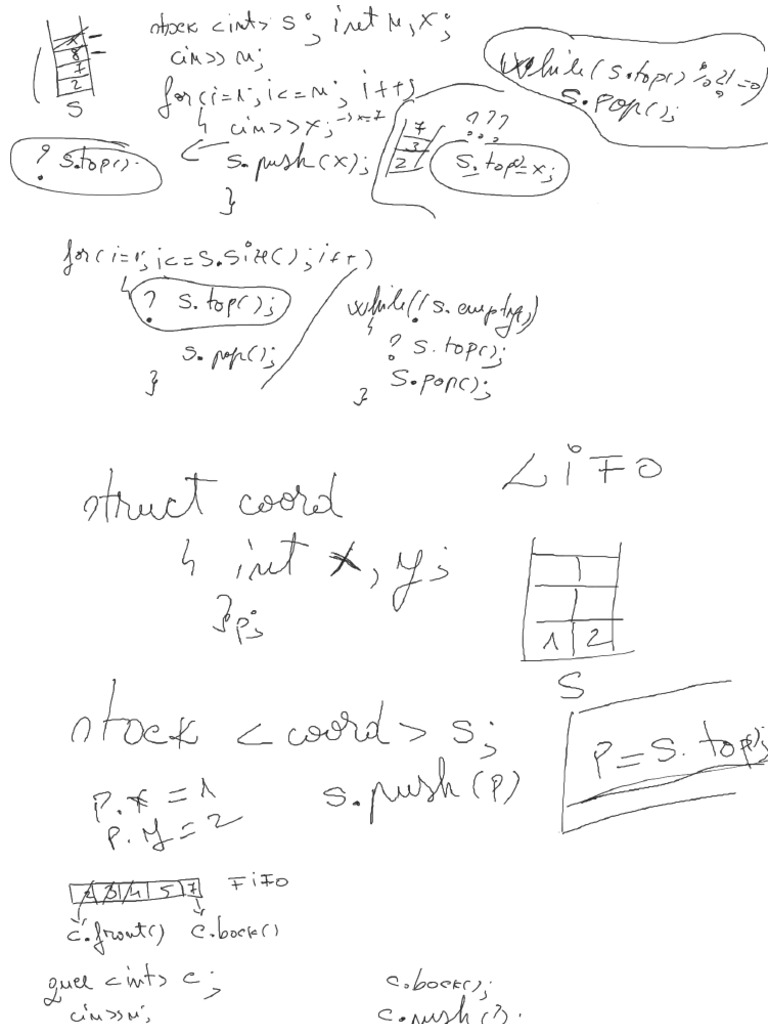 stack <int> s; int n, x;
cin>> n;
for(i=1; i<=n; i++)
{ cin>>x; → x=7
s.push(x);
}
x
8
7
2
S
? s.top().
7
3
2
? ? ?
s.top()=x;
while(s.top() %2!=0
s.pop();
for(i=1; i<=s.size(); i++)
{ ? s.top();
s.pop();
}
while(!s.empty)
{
? s.top();
s.pop();
}
LiFO
struct coord
{ int x, y;
}p;
1 2
S
stack <coord> s;
p.x = 1
p.y = 2
s.push(p)
p = s.top();
2 3 4 5 7 FiFO
c.front() c.back()
<int> c;
cin>>n;
c.back();
c.push(?);